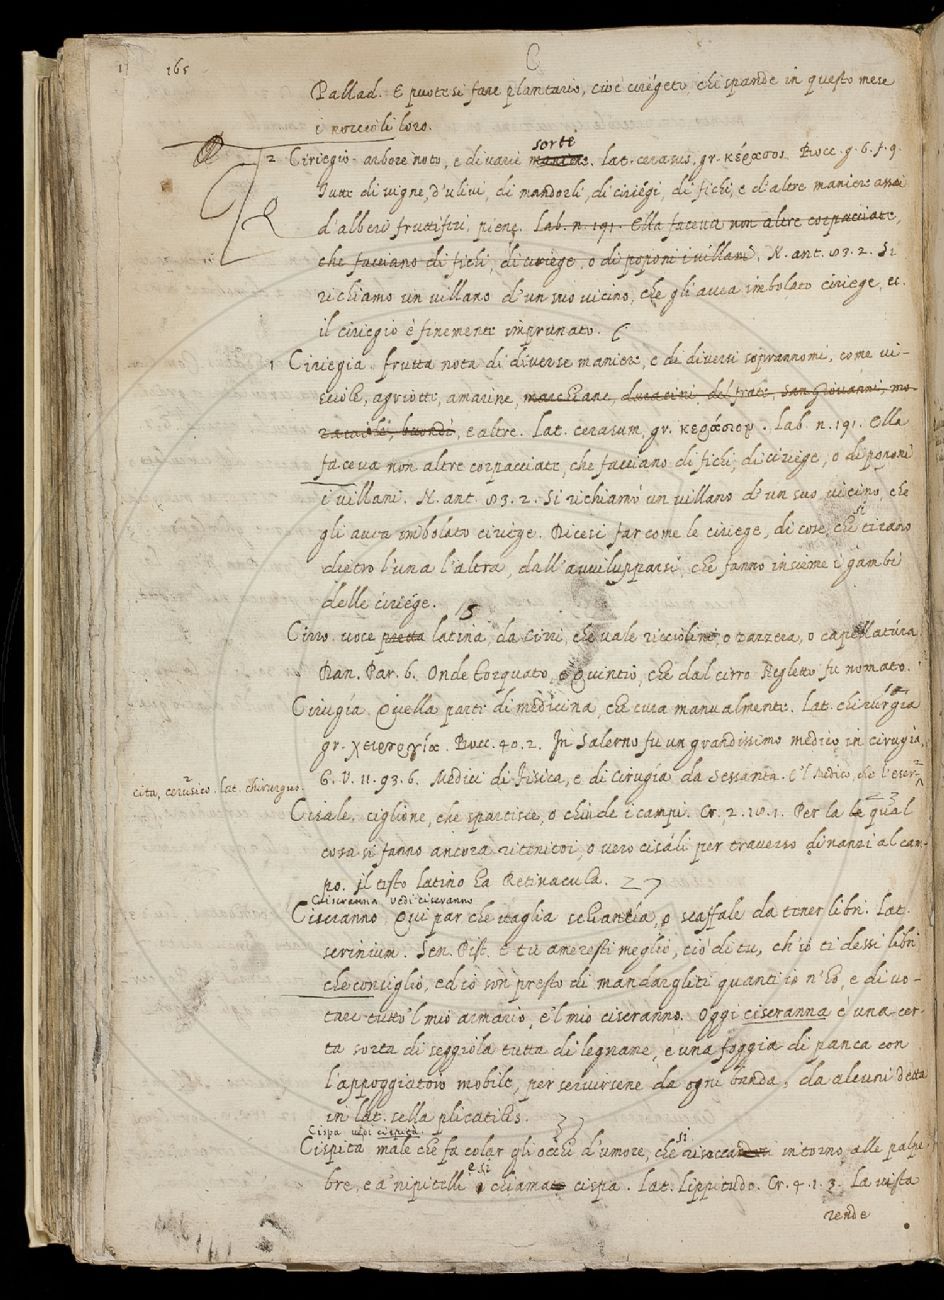 165
C
Pallad. E puotesi fare plantario, cioè ciriégeto, chi spande in questo mese
i noccioli loro.
2 Ciriegio. arbore noto, e di varie maniere sorte. lat. cerasus, gr. κέρασος. Bocc. g. 6. f. 9.
Tutte di vigne, d'ulivi, di mandorli, di ciriégi, di fichi, e d'altre maniere assai
d'alberi fruttiferi, piene. Lab. n. 191. Ella faceva non altre corpacciate,
che facciano di fichi, di ciriége, o di poponi i villani. N. ant. 83. 2. Si
richiamò un villano d'un suo vicino, che gli avea imbolato ciriege, ec.
il ciriegio è finemente imprunato.
1 Ciriegia. frutta nota di diverse maniere, e di diversi soprannomi, come vi-
sciole, agriotte, amarine, marchiane, duracini, del frate, San Giovanni, mo-
raiuole, buonde, e altre. Lat. cerasum, gr. κεράσιον. Lab. n. 191. Ella
faceva non altre corpacciate, che facciano di fichi, di ciriege, o di poponi
i villani. N. ant. 83. 2. Si richiamò un villano d'un suo vicino, che
gli avea imbolato ciriége. Dicesi far come le ciriege, di cose, che si tirano
dietro l'una l'altra, dall'avvilupparsi, che fanno insieme i gambi
delle ciriége.
Cirro. voce pretta latina, da Cirri, che vale ricciolini, o zazzera, o capellatúra.
Dan. Par. 6. Onde Torquato, e Quintio, che dal cirro Negletto fu nomato.
Cirugía. Quella parte di medicina, che cura manualmente. Lat. chirurgia
gr. χειρουργία. Bocc. 40. 2. In Salerno fu un grandissimo medico in cirugia,
G. V. 11. 93. 6. Medici di Fisica, e di Cirugía da Sessanta. E 'l Medico, che l'eser-
cita, cerusico. lat. chirurgus.
Cisale. ciglione, che spartisce, o chiude i campi. Cr. 2. 18. 1. Per la le qual
cosa si fanno ancora ritenitoi, o vero cisáli per traverso dinanzi al cam-
po. il testo latino ha Retinacula.
Ciseranna vedi ciseranno
Ciseranno Qui par che vaglia schiancia, o scaffale da tener libri. Lat.
scrinium. Sen. Pist. E tu ameresti meglio, ciò di tu, ch'io ti dessi libri
che consiglio, ed io son presto di mandargliti quanti io n'ho, e di vo-
tare tutto 'l mio armario, e 'l mio ciseranno. Oggi ciseranna è una cer-
ta sorta di seggiola tutta di legname, e una foggia di panca con
l'appoggiatoio mobile, per servirsene da ogni banda, da alcuni detta
in lat. sella plicatilis.
Cispa vedi cispità.
Cispita male che fa colar gli occhi d'umore, che si risecca intorno alle palpe-
bre, e a' nipitelli e si chiama cispa. Lat. lippitudo. Cr. 4. 1. 3. La vista
rende